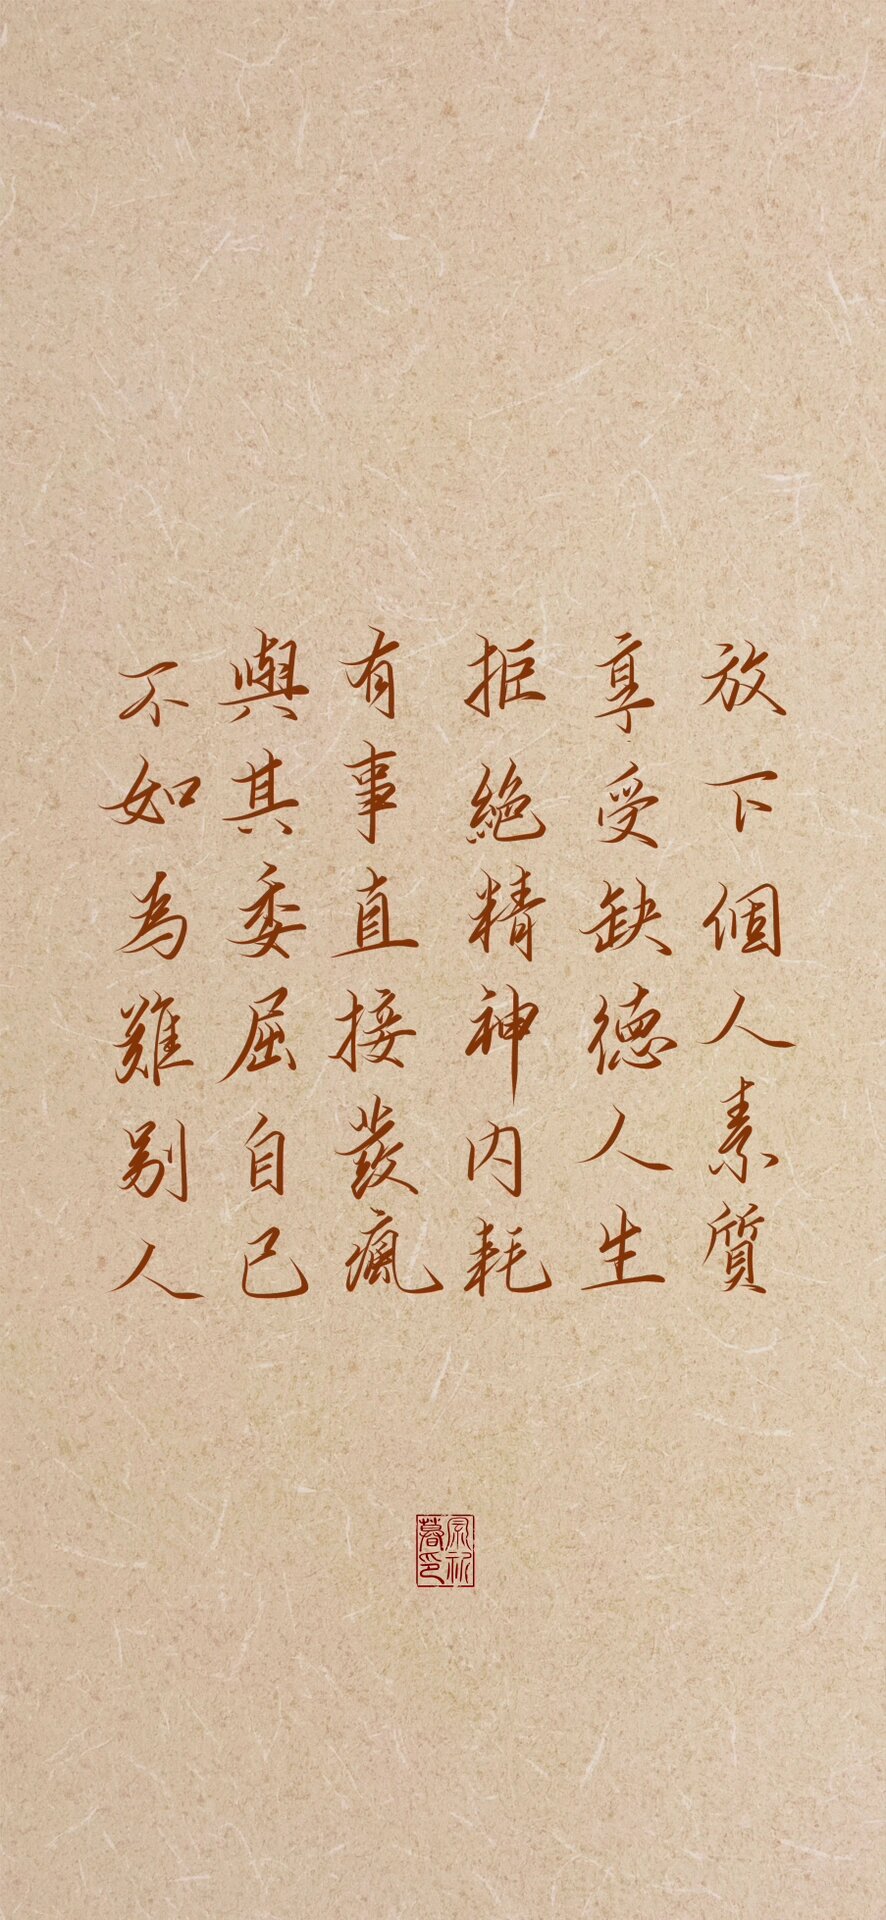 放下個人素質
享受缺德人生
拒絶精神内耗
有事直接發瘋
與其委屈自己
不如為難别人